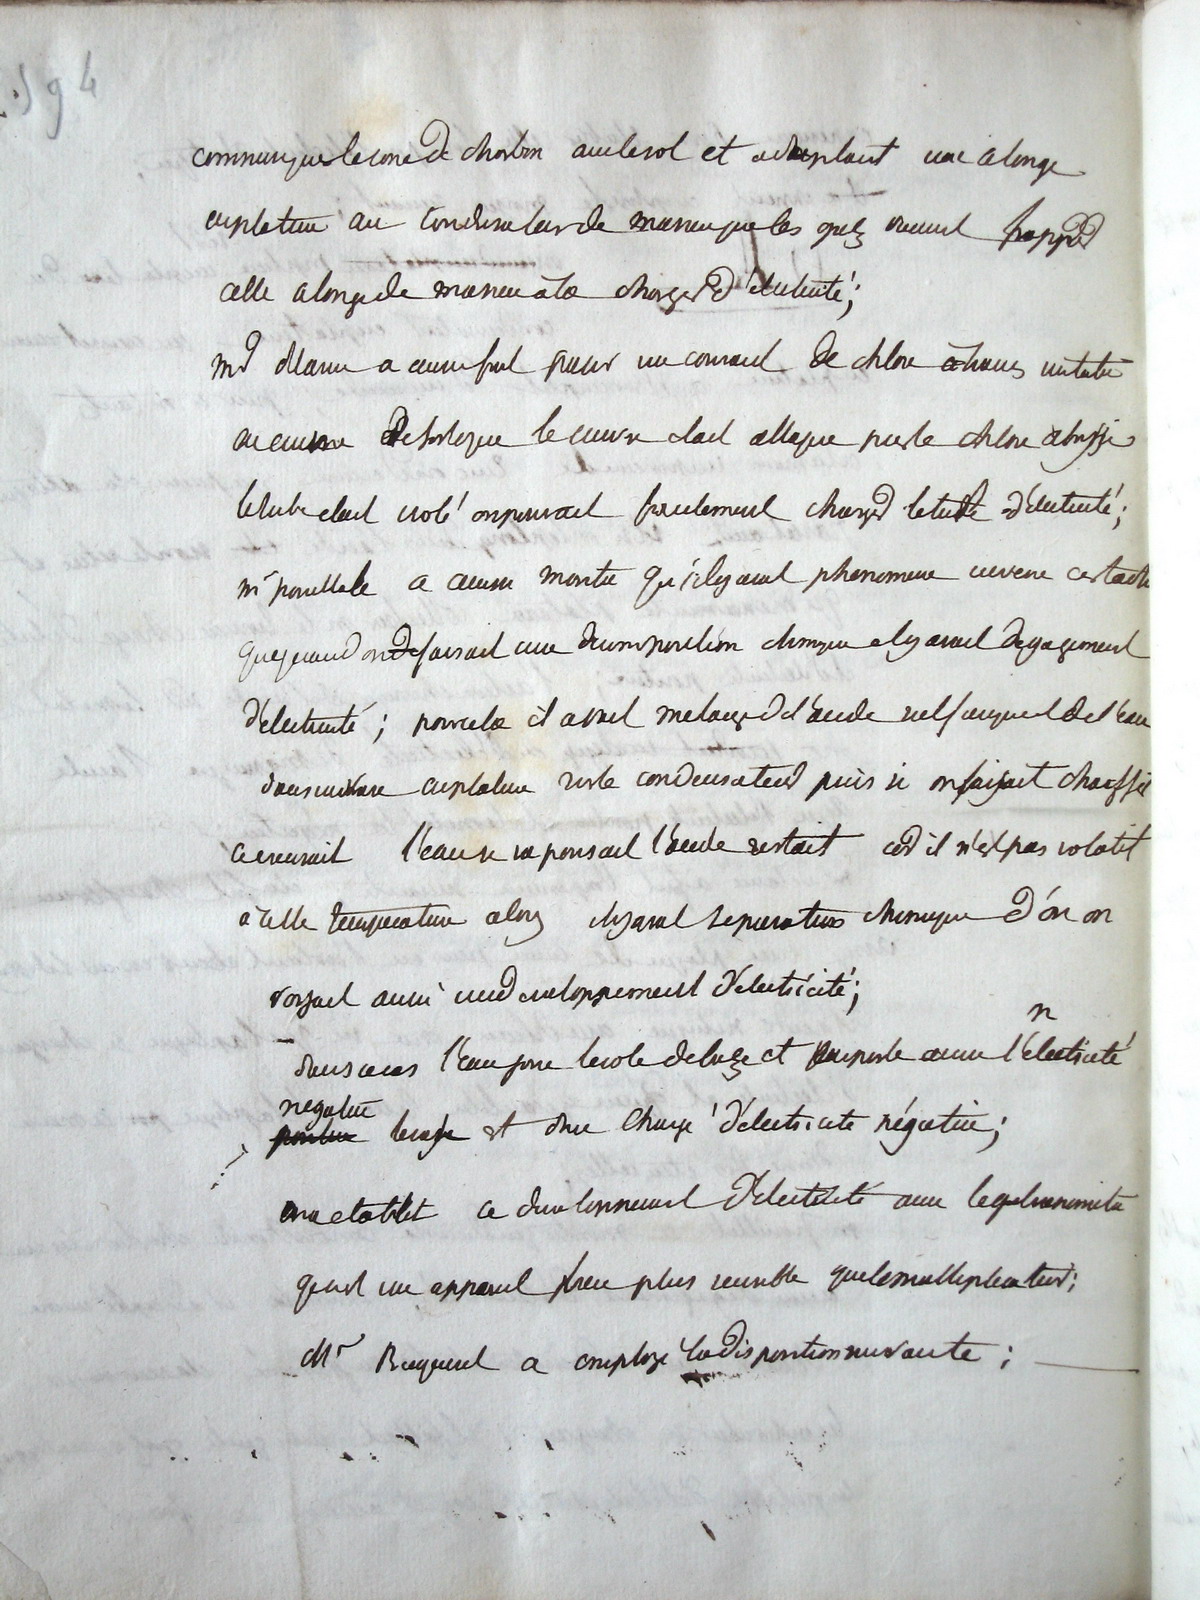 594
communiquer le cone de charbon avec le sol et adaptant une alonge
en platine au condensateur de maniere que les gaz vinrent frapper
celle alonge de maniere à la charger d'électricité;
mr a aussi fait passer un courant de chlore à travers un tube
de cuivre de sorte que le cuivre etait attaque par le chlore
le tube etait isolé on pouvait facilement charger le tube d'électricité;
mr pouillet a aussi montré qu'il y avait phenomene inverse
que quand on faisait une decomposition chimique il y avait degagement
d'électricité; pour cela il avait melangé de l'acide sulfurique et de l'eau
dans un vase en platine sur le condensateur puis si on faisait chauffer
l'eau se vaporisait l'acide restait car il n'est pas volatil
à celle temperature alors il y avait separation chimique d'où on
voyait aussi un developpement d'électricité;
dans ce cas l'eau joue le role de base et emporte avec l'électricité n
negative
positive le vase est donc chargé d'électricité négative;
on a etablit ce developpement d'électricité avec le galvanometre
qui est un appareil plus sensible que le multiplicateur;
Mr Becquerel a employé la disposition suivante;